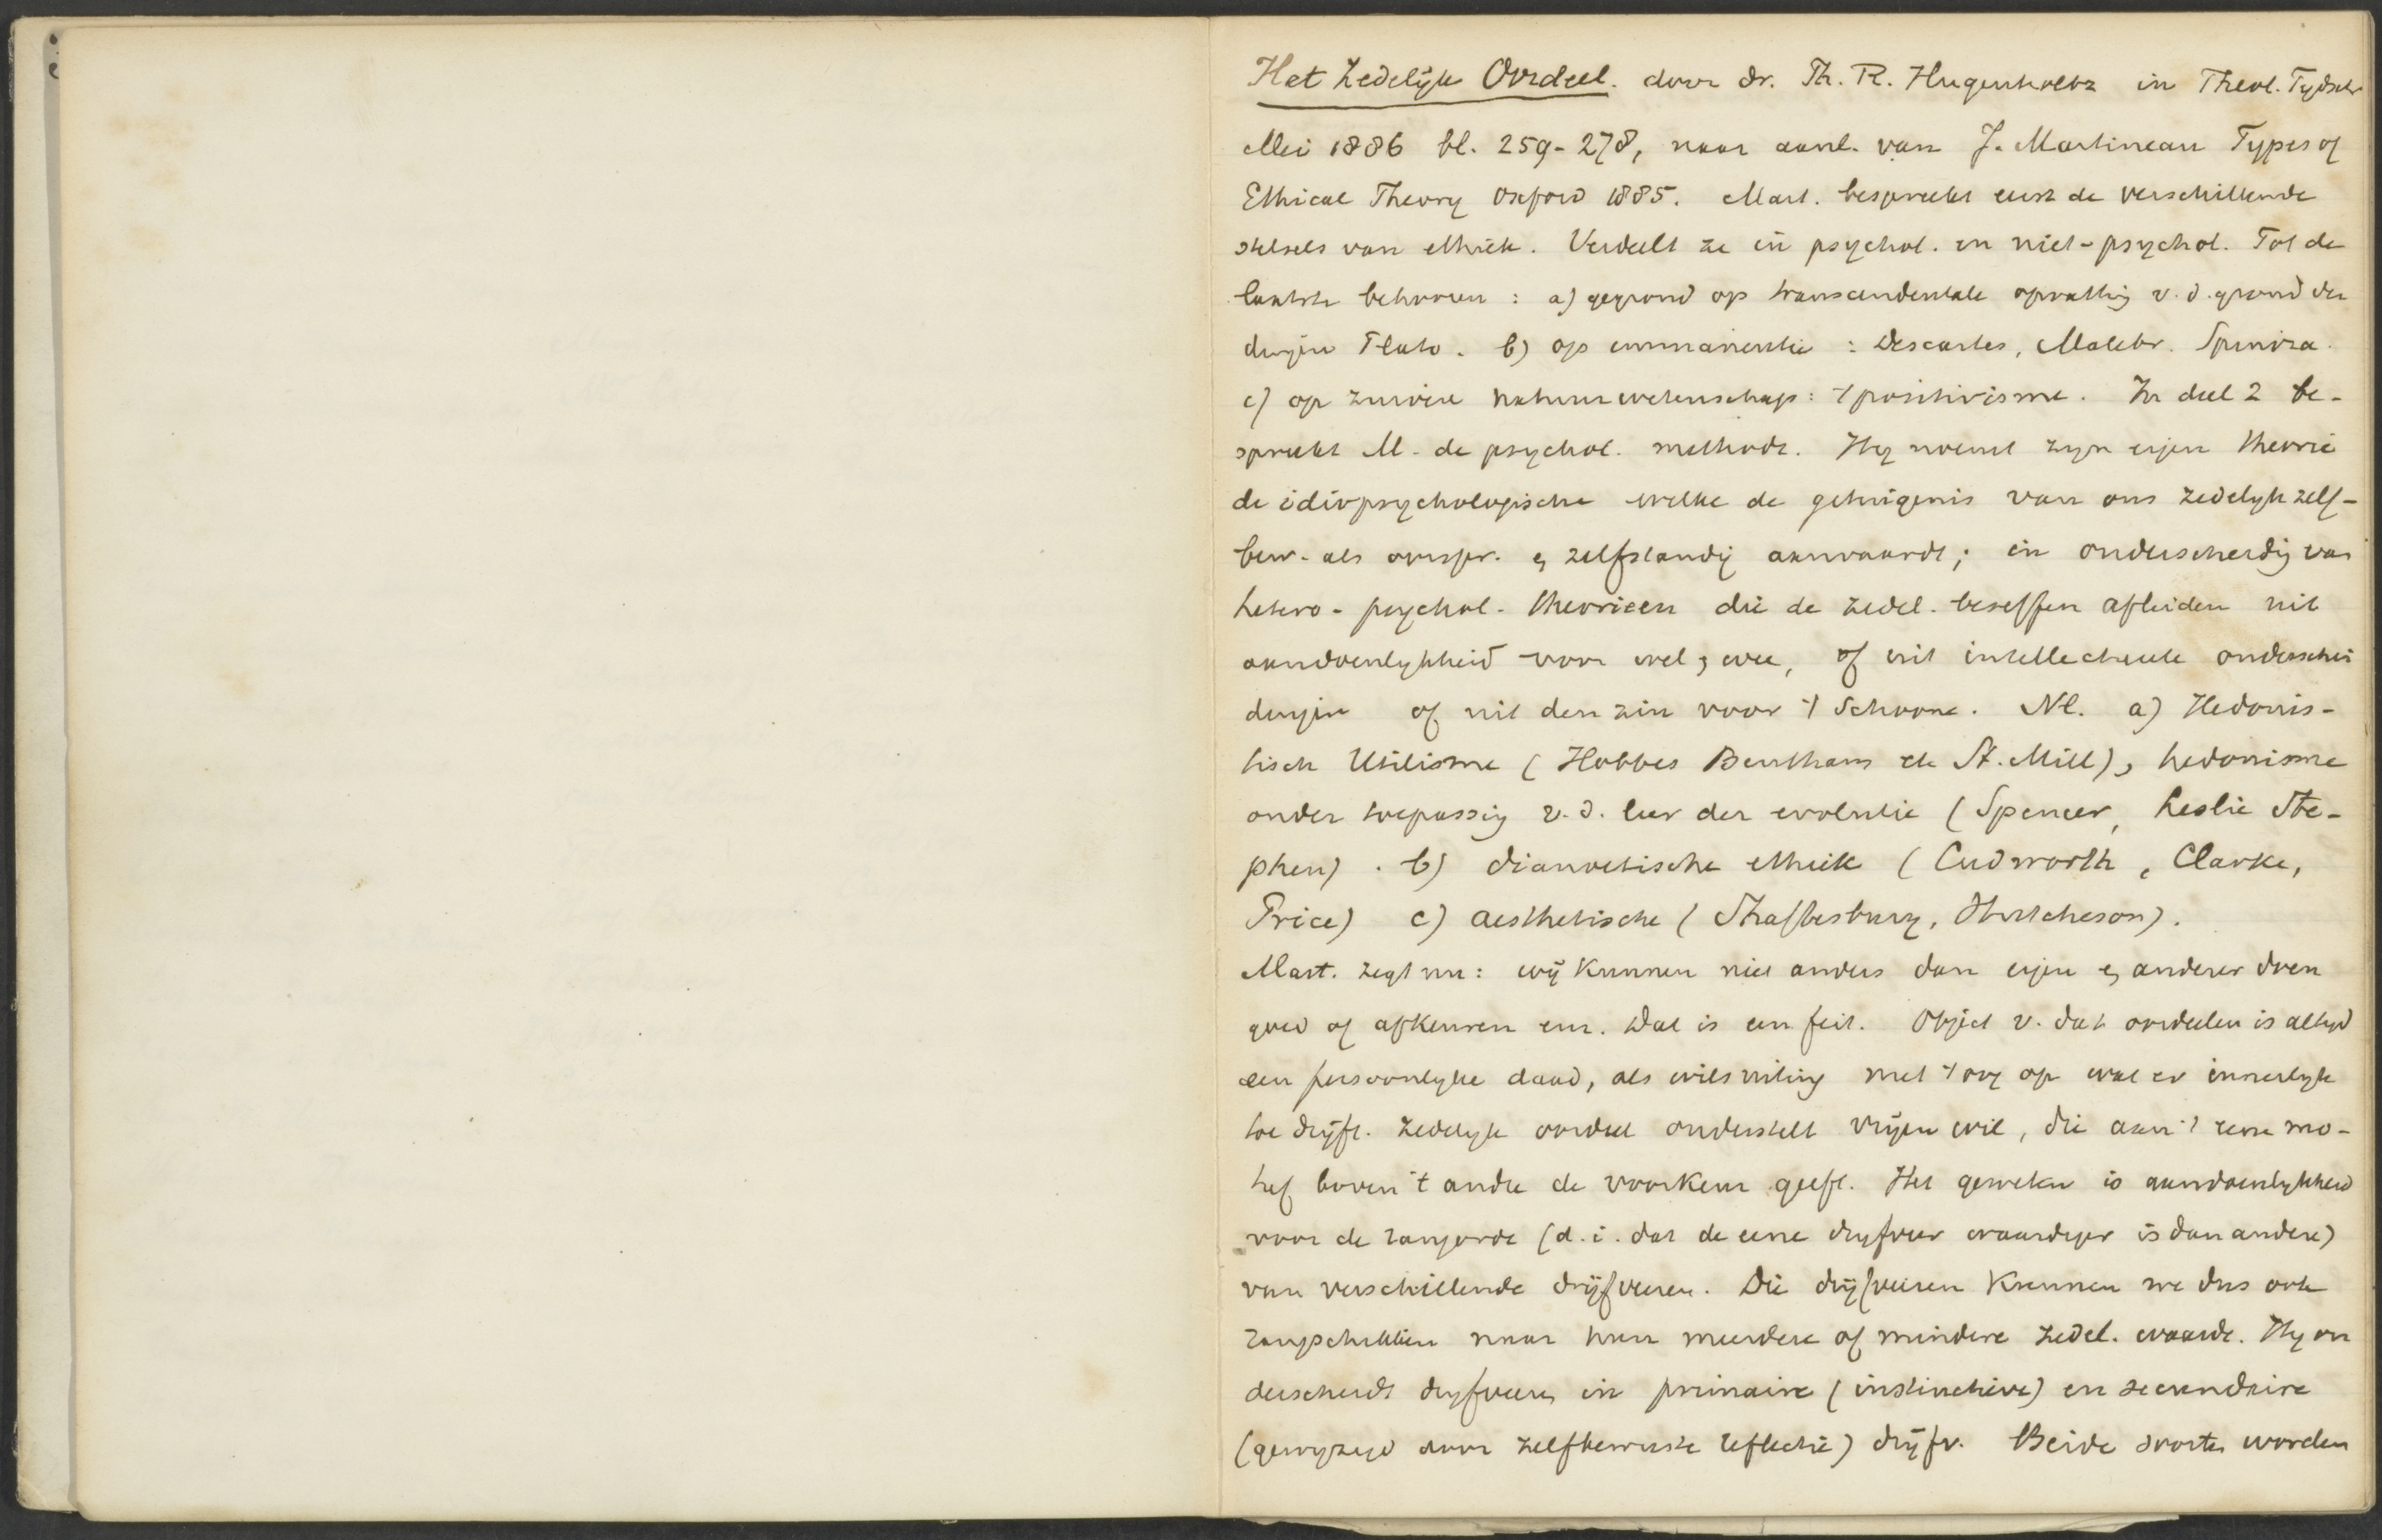 Het Zedelijk Oordeel. door dr. Ph. R. Hugenholtz in Theol. Tijdschr
Mei 1886 bl. 259-278, naar aanl. van J. Martineau Types of
Ethical Theory Oxford 1885. Mart. bespreekt eerst de verschillende
stelsels van ethiek. Verdeelt ze in psychol. en niet-psychol. Tot de
laatste behooren : a) gegrond op transcendentale opvatting v. d. grond der
dingen Plato. b) op immanentie : Descartes, Malebr. Spinoza.
c) op zuivere natuurwetenschap : 't positivisme. In deel 2 be-
spreekt M. de psychol. methode. Hij noemt zijn eigen theorie
de idiopsychologische welke de getuigenis van ons zedelijk zelf-
bew. als oorspr. en zelfstandig aanvaardt; in onderscheidig van
hetero-psychol. theorieen die de zedel. beseffen afleiden uit
aandoenlijkheid voor wel en wee, of uit intellectueele onderschei
dingen of uit den zin voor 't schoone. Nl. a) Hedonis-
tisch Utilisme (Hobbes Bentham etc St. Mill), hedonisme
onder toepassing v. d. leer der evolutie (Spencer, Leslie Ste-
phen). b) dianoetische ethiek (Cudworth, Clarke,
Price) c) aesthetische (Shaftesbury, Hutcheson).
Mart. zegt nu: wij kunnen niet anders dan eigen en anderer doen
goed of afkeuren enz. Dat is een feit. Object v. dat oordeelen is altijd
een persoonlijke daad, als wilsuiting met 't oog op wat er innerlijk
toe drijft. Zedelijk oordeel onderstelt vrijen wil, die aan 't eene mo-
tief boven 't andre de voorkeur geeft. Het geweten is aandoenlijkheid
voor de rangorde (d.i. dat de eene drijfveer waardiger is dan andere)
van verschillende drijfveeren. Die drijfveeren kunnen we dus ook
rangschikken naar hun meerdere of mindere zedel. waarde. Hij on
derscheidt drijfveeren in primaire (instinctieve) en secundaire
(gewijzigd door zelfbewuste reflectie) drijfv. Beide soorten worden